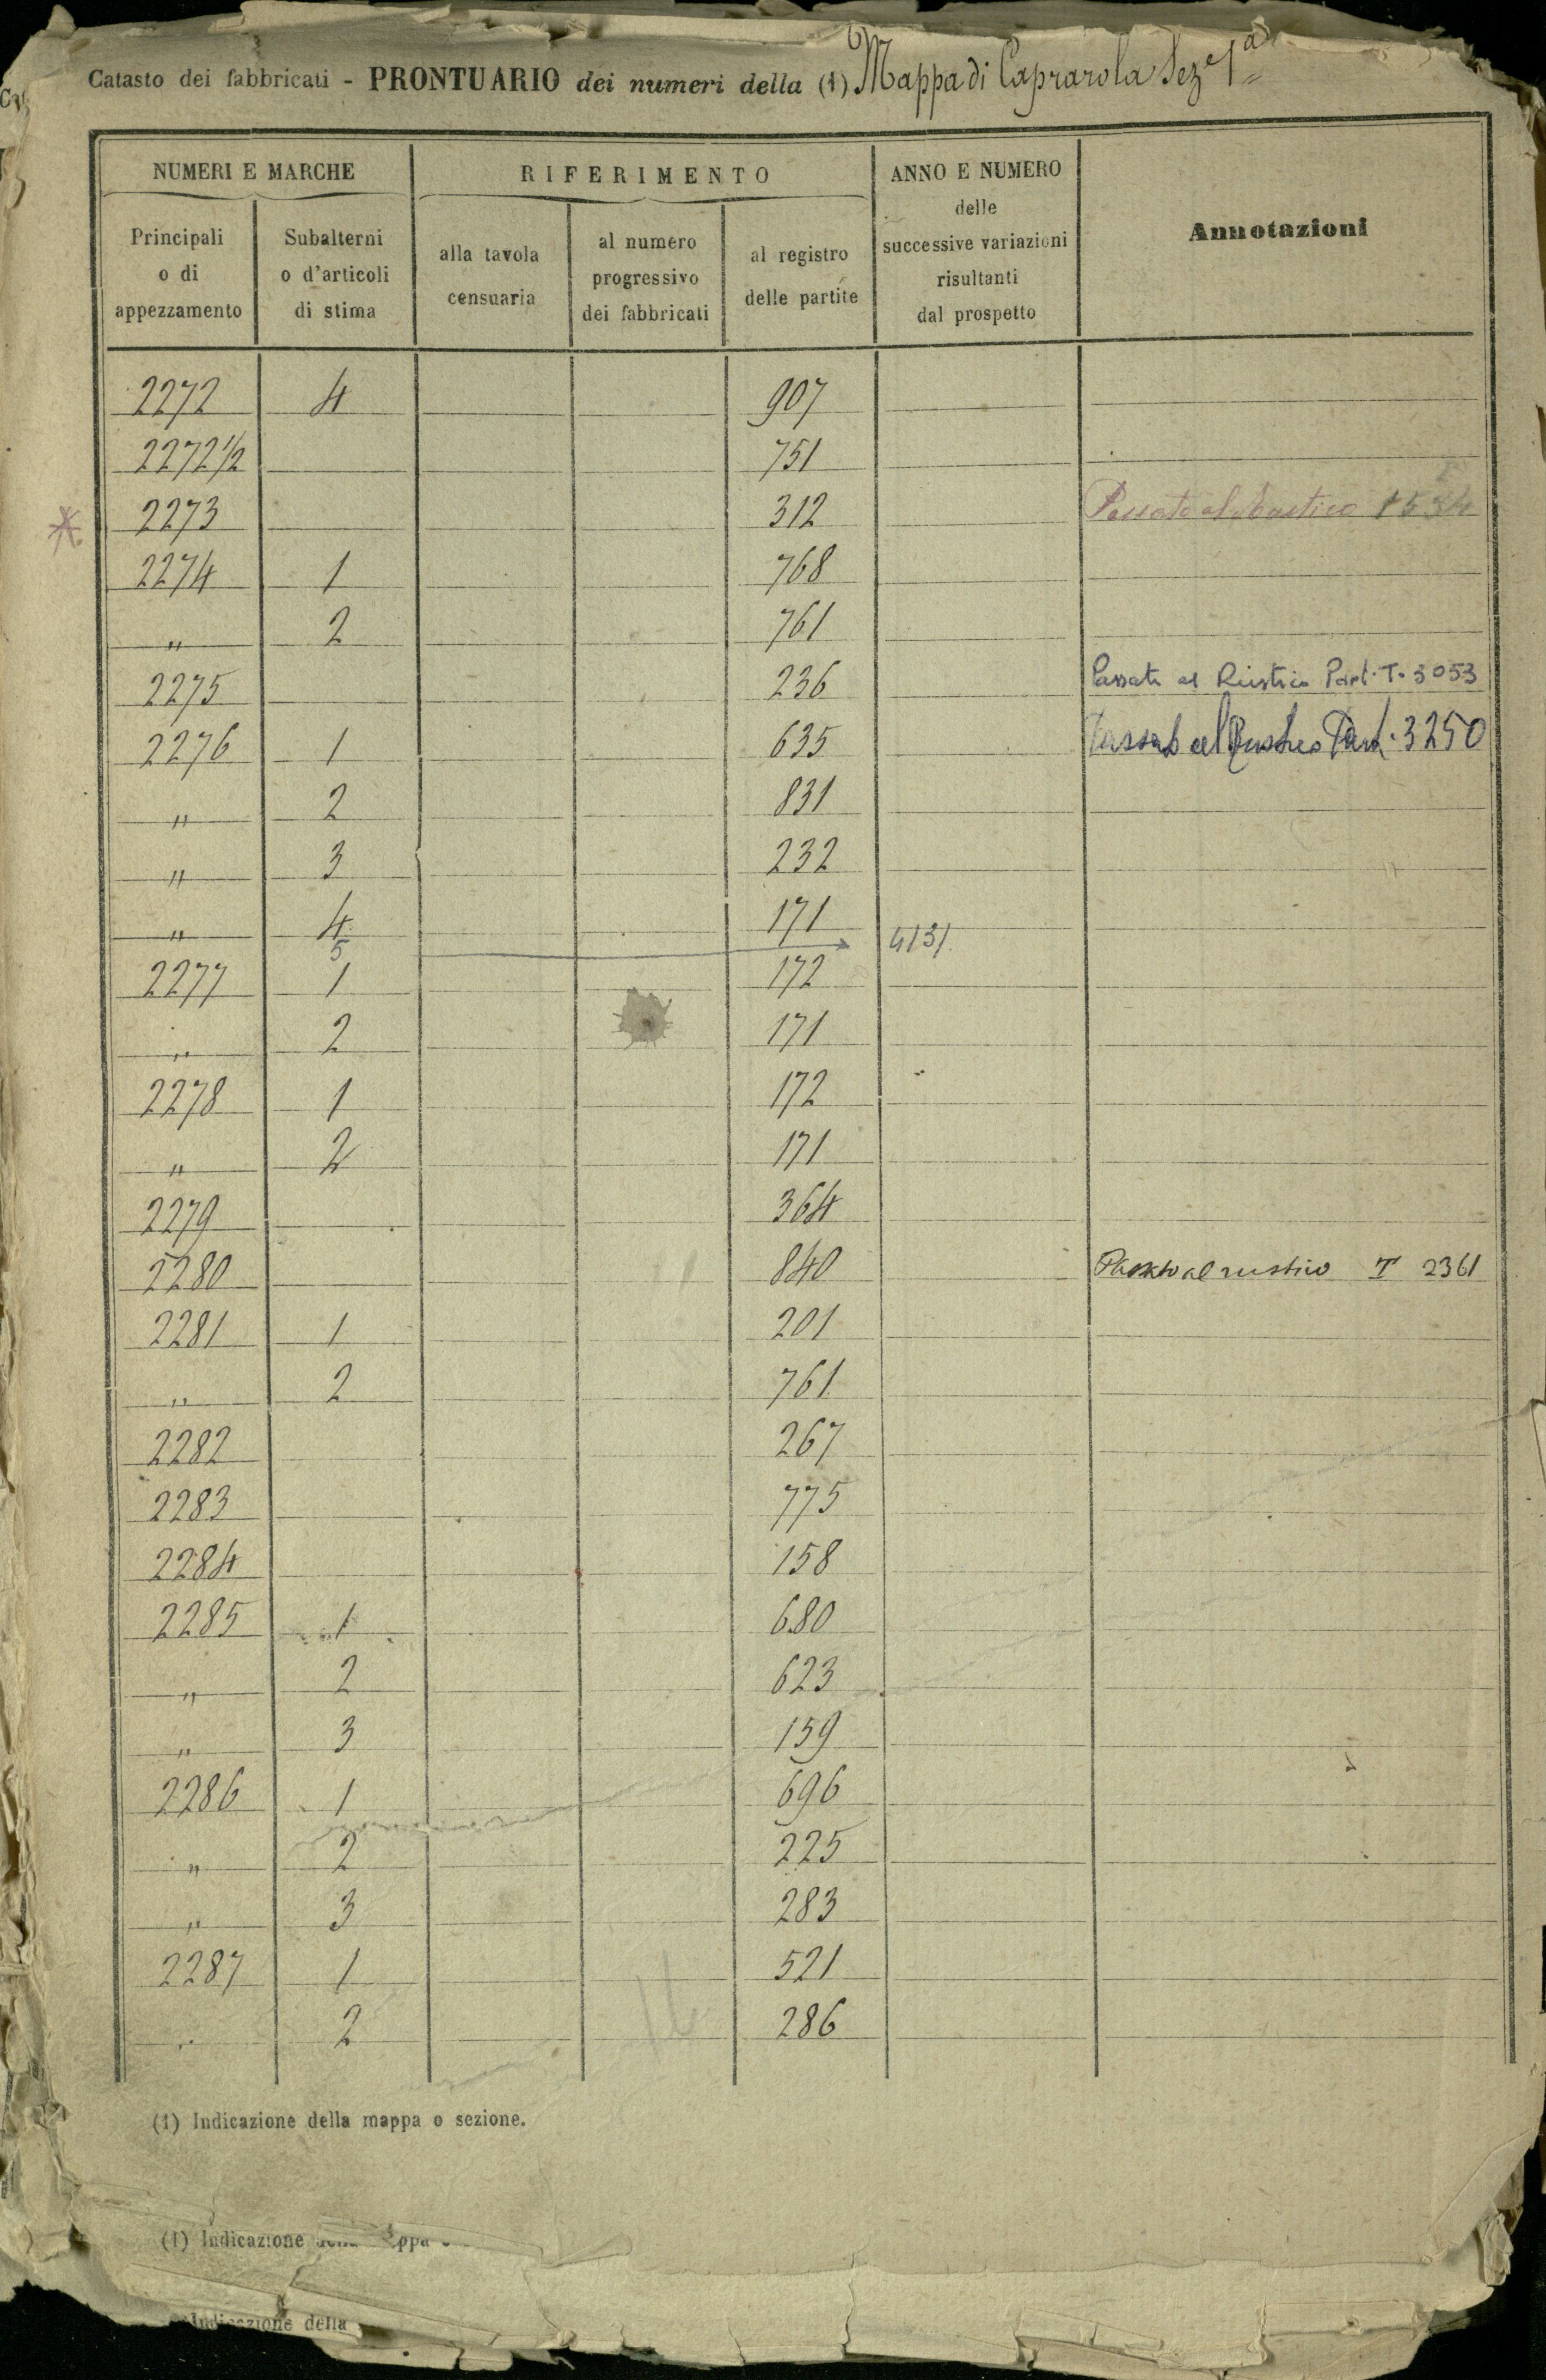 Catasto dei fabbricati - PRONTUARIO dei numeri della (1) Mappa di Caprarola Sez.e 1a
NUMERI E MARCHE
RIFERIMENTO
ANNO E NUMERO
delle
successive variazioni
risultanti
dal prospetto
Annotazioni
Principali
o di
appezzamento
Subalterni
o d'articoli
di stima
alla tavola
censuaria
al numero
progressivo
dei fabbricati
al registro
delle partite
2272 4 907
2272 1/2 751
2273 312 Passato al Rustico
2274 1 768
" 2 761
2275 236 Passato al Rustico Part. T. 3053
2276 1 635 Passato al Rustico Part. 3250
" 2 831
" 3 232
" 4 171
5 4131
2277 1 172
" 2 171
2278 1 172
" 2 171
2279 364
2280 840 Passato al rustico T 2361
2281 1 201
" 2 761
2282 267
2283 775
2284 158
2285 1 680
" 2 623
" 3 159
2286 1 696
" 2 225
" 3 283
2287 1 521
" 2 286
(1) Indicazione della mappa o sezione.
(1) Indicazione della mappa
Indicazione della